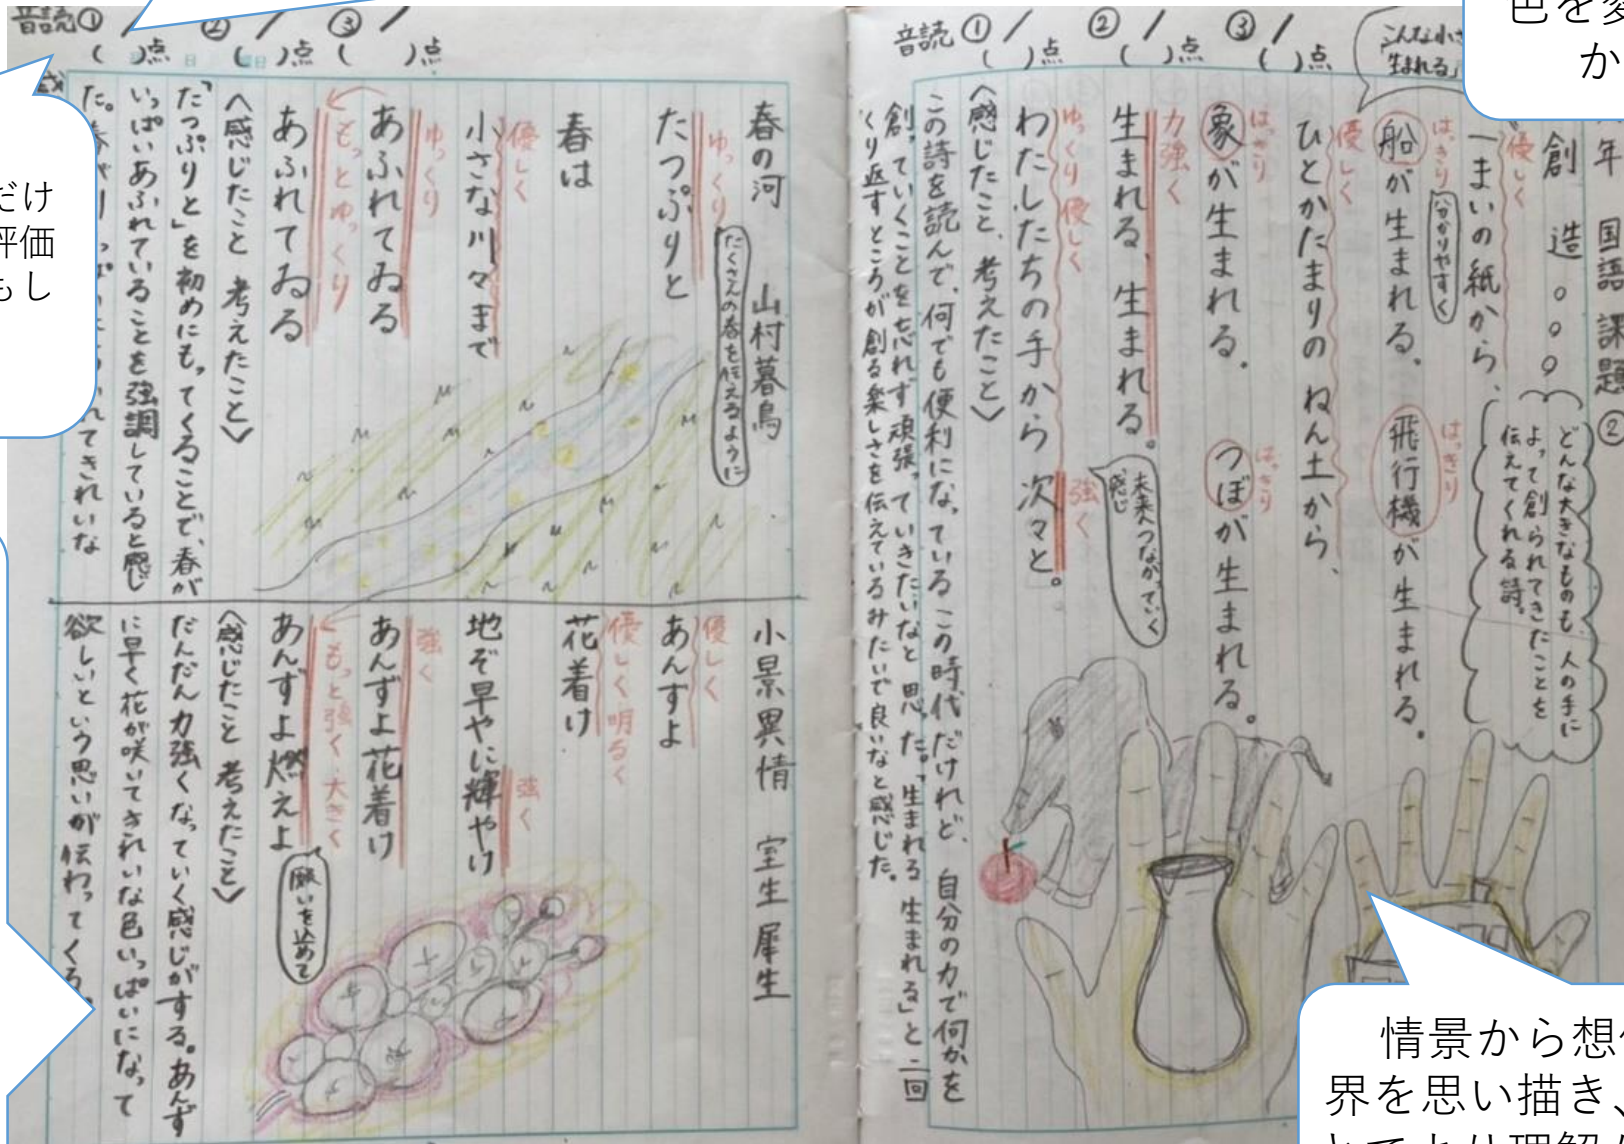 六年 国語 課題②
創造。。。
どんな大きなものも、人の手に
よって創られてきたことを
伝えてくれる詩。
優しく
一まいの紙から、
はっきり
分かりやすく
はっきり
船が生まれる。 飛行機が生まれる。
優しく
ひとかたまりの ねん土から、
はっきり
はっきり
象が生まれる。 つぼが生まれる。
力強く
生まれる、生まれる。
未来へつながっていく
感じ
ゆっくり優しく
強く
わたしたちの手から 次々と。
〈感じたこと、考えたこと〉
この詩を読んで、何でも便利になっている この時代だけれど、自分の力で何かを
創っていくことを忘れず頑張っていきたいなと思った。「生まれる 生まれる」と二回
くり返すところが創る楽しさを伝えているみたいで良いなと感じた。
音読① / ② / ③ /
( )点 ( )点 ( )点
音読① / ② / ③ /
( )点 ( )点 ( )点
春の河 山村暮鳥
たくさんの春を伝えるように
ゆっくり
たっぷりと
春は
優しく
小さな川々まで
ゆっくり
あふれてゐる
もっとゆっくり
あふれてゐる
〈感じたこと 考えたこと〉
「たっぷりと」を初めにもってくることで、春が
いっぱいあふれていることを強調していると感じ
た。
小景異情 室生犀星
優しく
あんずよ
優しく明るく
花着け
強く
地ぞ早やに輝やけ
強く
あんずよ花着け
もっと強く大きく
あんずよ燃えよ
願いを込めて
〈感じたこと 考えたこと〉
だんだん力強くなっていく感じがする。あんず
に早く花が咲いてきれいな色いっぱいになって
欲しいという思いが伝わってくる。
こんな小さ
生まれる」
色を変
か
だけ
評価
もし
情景から想像
界を思い描き、